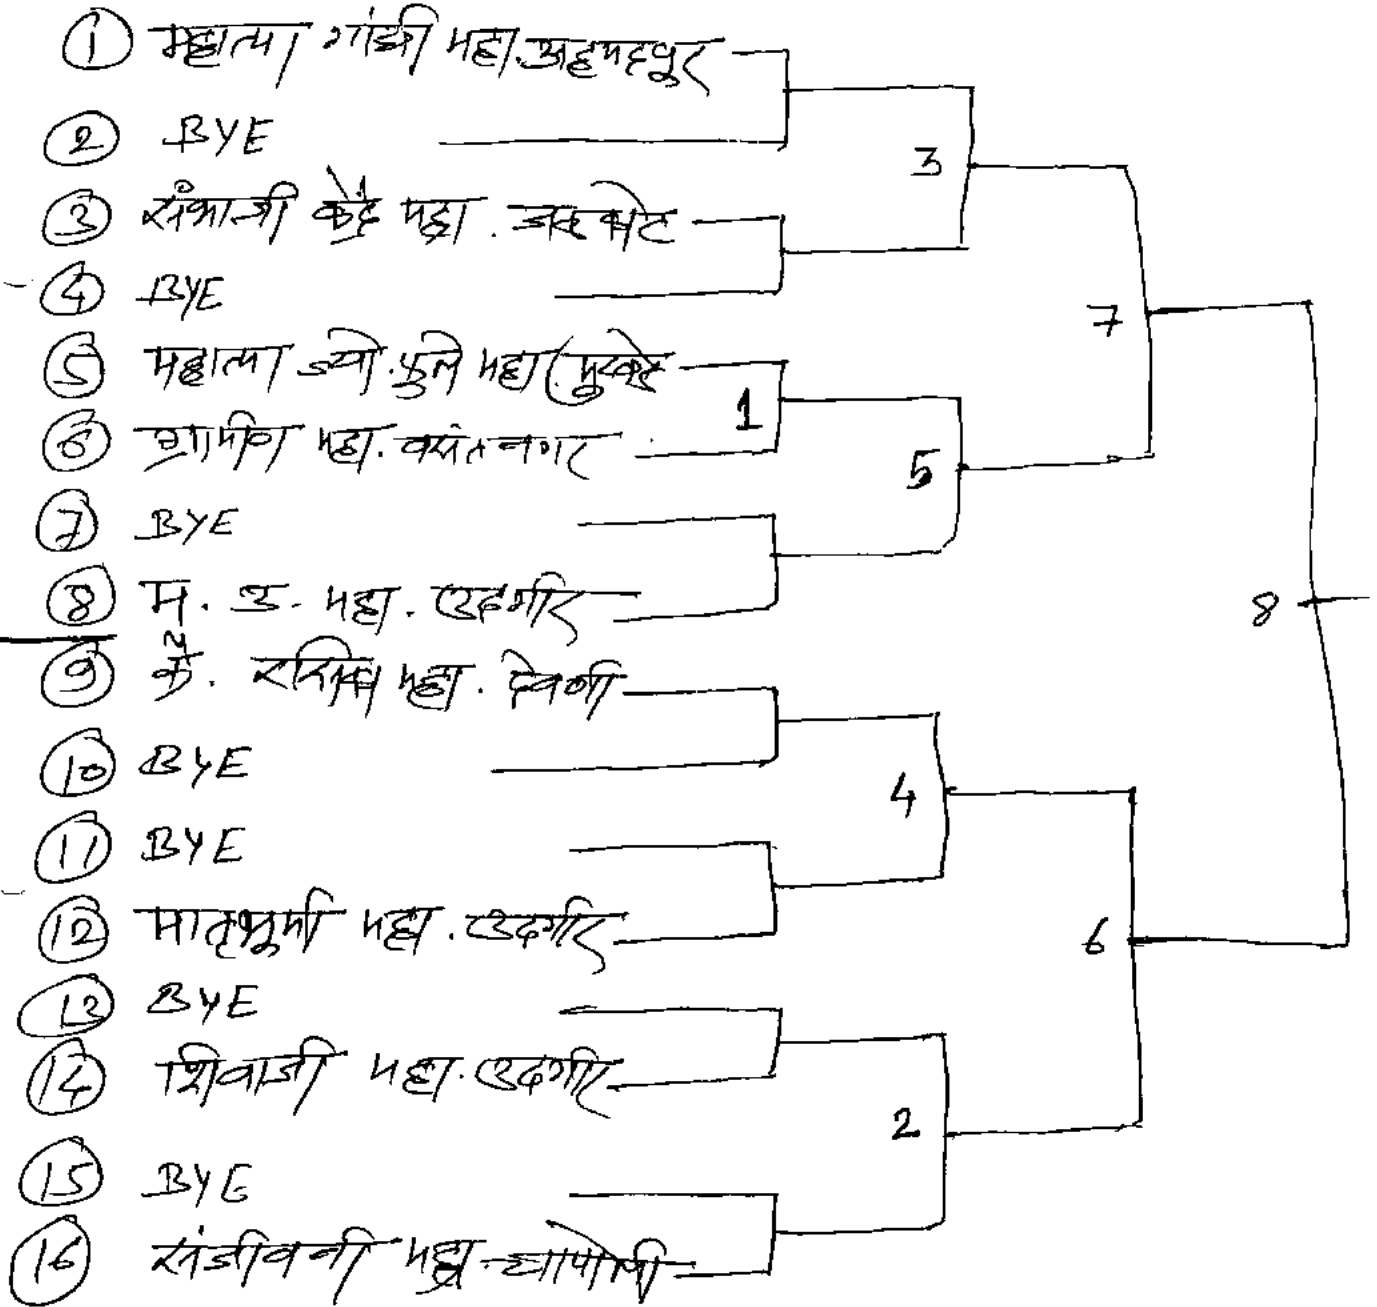 1 महात्मा गांधी महा. अहमदपूर
2 BYE
3
3 संभाजी केंद्रे महा. जळकोट
4 BYE
7
5 महात्मा ज्यो. फुले महा. मुखेड
1
6 ग्रामीण महा. वसंतनगर
5
7 BYE
8 म. उ. महा. उदगीर
8
9 कै. रसिका महा. देवणी
10 BYE
4
11 BYE
12 मातृभूमी महा. उदगीर
6
13 BYE
14 शिवाजी महा. उदगीर
2
15 BYE
16 संजीवनी महा. चापोली